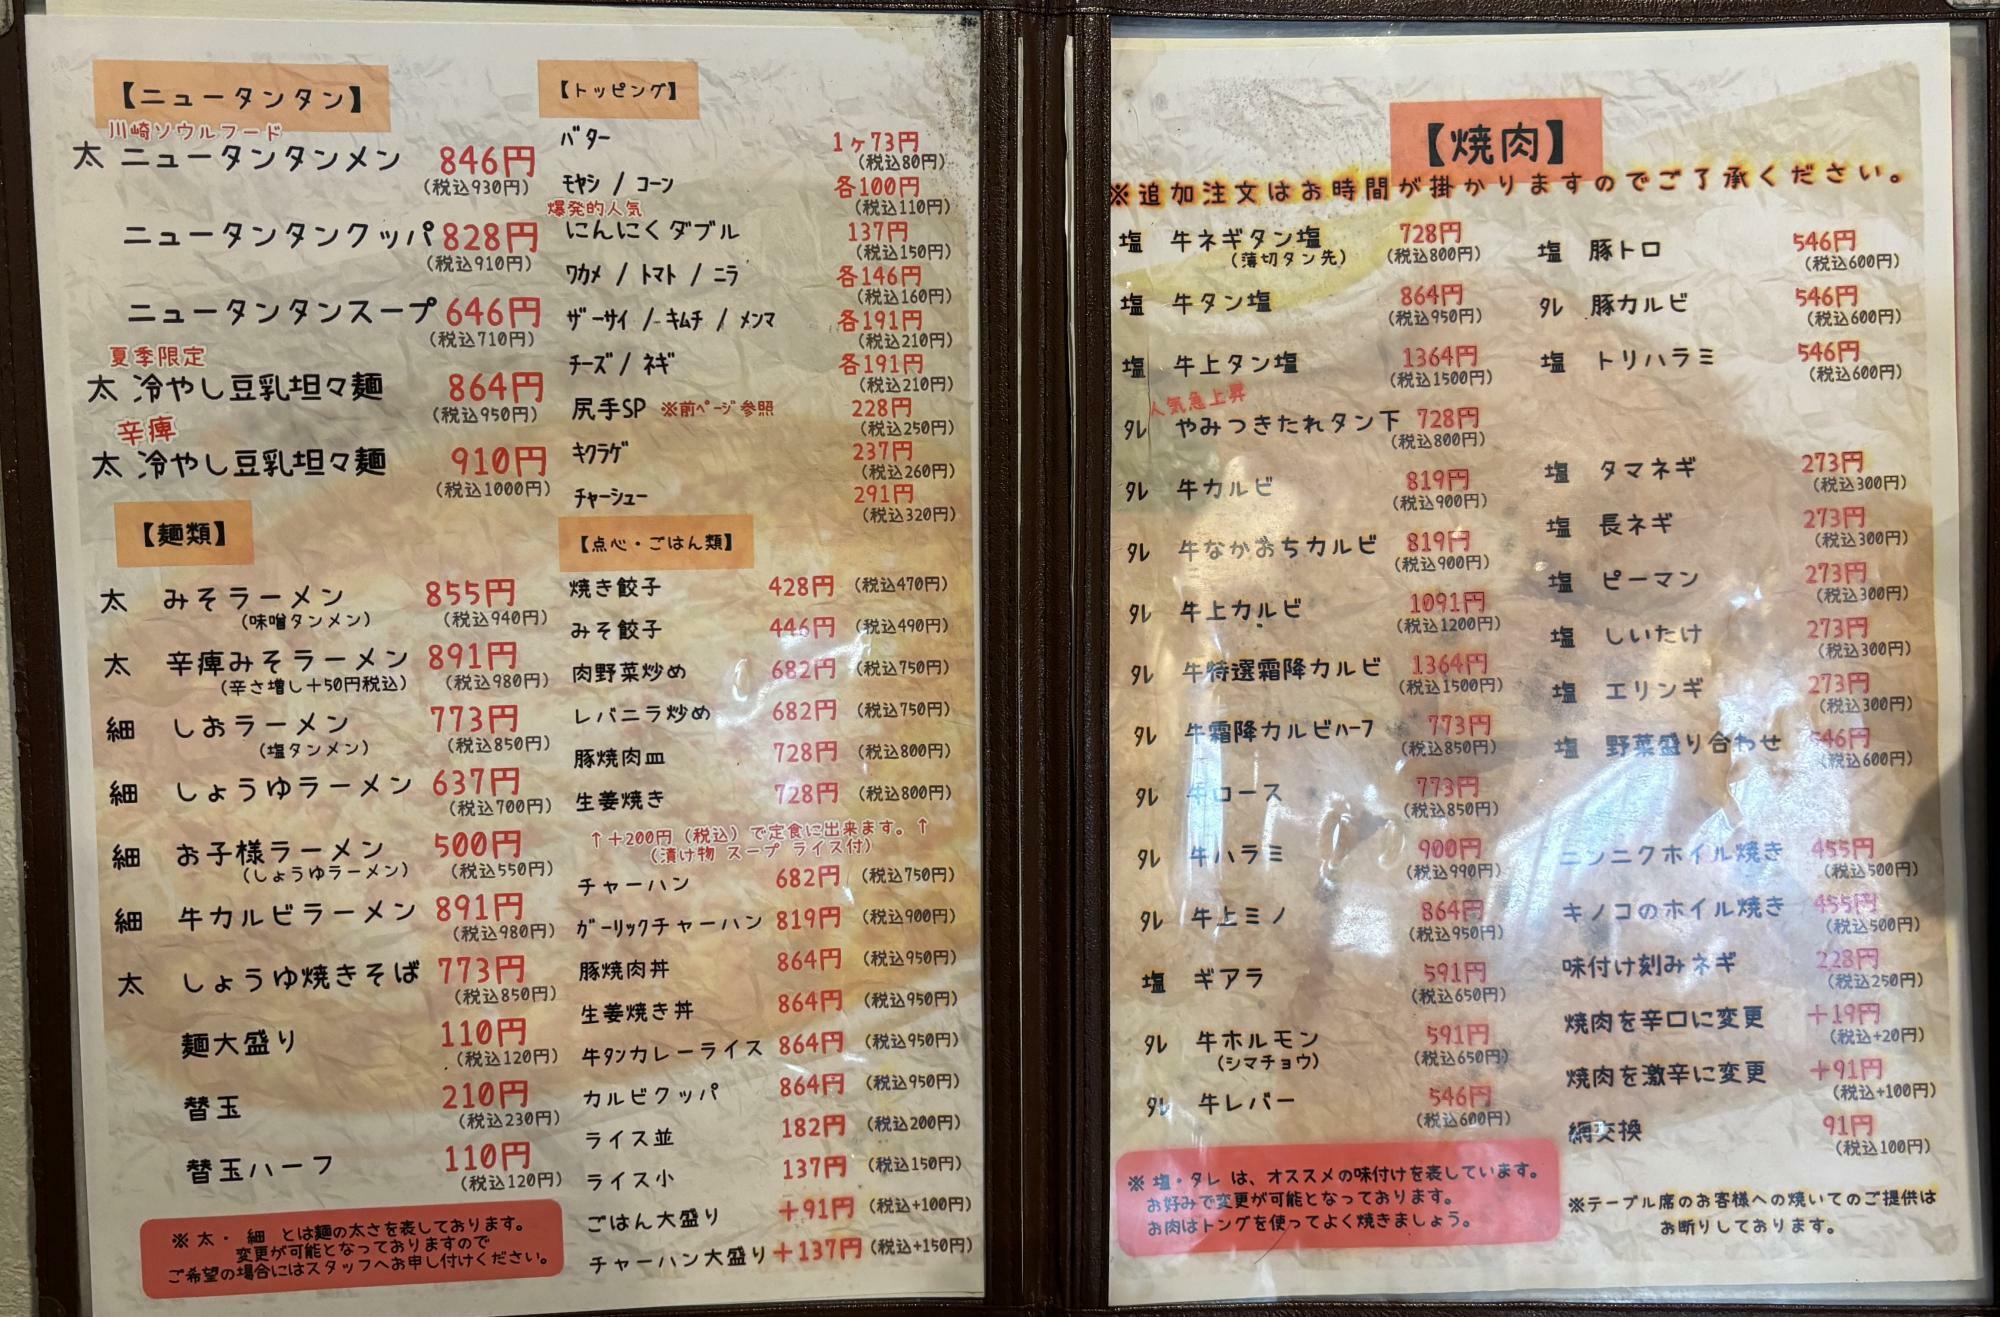 【ニュータンタン】
川崎ソウルフード
太 ニュータンタンメン 846円
(税込930円)
ニュータンタンクッパ 828円
(税込910円)
ニュータンタンスープ 646円
(税込710円)
夏季限定
太 冷やし豆乳坦々麺 864円
(税込950円)
辛痺
太 冷やし豆乳坦々麺 910円
(税込1000円)
【麺類】
太 みそラーメン 855円
(味噌タンメン) (税込940円)
太 辛痺みそラーメン 891円
(辛さ増し+50円税込) (税込980円)
細 しおラーメン 773円
(塩タンメン) (税込850円)
細 しょうゆラーメン 637円
(税込700円)
細 お子様ラーメン 500円
(しょうゆラーメン) (税込550円)
細 牛カルビラーメン 891円
(税込980円)
太 しょうゆ焼きそば 773円
(税込850円)
麺大盛り 110円
(税込120円)
替玉 210円
(税込230円)
替玉ハーフ 110円
(税込120円)
※ 太・ 細 とは麺の太さを表しております。
変更が可能となっておりますので
ご希望の場合にはスタッフへお申し付けください。
【トッピング】
バター 1ヶ73円
(税込80円)
モヤシ / コーン 各100円
(税込110円)
爆発的人気
にんにくダブル 137円
(税込150円)
ワカメ / トマト / ニラ 各146円
(税込160円)
ザーサイ / キムチ / メンマ 各191円
(税込210円)
チーズ / ネギ 各191円
(税込210円)
尻手SP ※前ページ参照 228円
(税込250円)
キクラゲ 237円
(税込260円)
チャーシュー 291円
(税込320円)
【点心・ごはん類】
焼き餃子 428円 (税込470円)
みそ餃子 446円 (税込490円)
肉野菜炒め 682円 (税込750円)
レバニラ炒め 682円 (税込750円)
豚焼肉皿 728円 (税込800円)
生姜焼き 728円 (税込800円)
↑+200円(税込)で定食に出来ます。↑
(漬け物 スープ ライス付)
チャーハン 682円 (税込750円)
ガーリックチャーハン 819円 (税込900円)
豚焼肉丼 864円 (税込950円)
生姜焼き丼 864円 (税込950円)
牛タンカレーライス 864円 (税込950円)
カルビクッパ 864円 (税込950円)
ライス並 182円 (税込200円)
ライス小 137円 (税込150円)
ごはん大盛り +91円 (税込+100円)
チャーハン大盛り +137円 (税込+150円)
【焼肉】
※追加注文はお時間が掛かりますのでご了承ください。
塩 牛ネギタン塩 728円
(薄切タン先) (税込800円)
塩 牛タン塩 864円
(税込950円)
塩 牛上タン塩 1364円
(税込1500円)
人気急上昇
タレ やみつきたれタン下 728円
(税込800円)
タレ 牛カルビ 819円
(税込900円)
タレ 牛なかおちカルビ 819円
(税込900円)
タレ 牛上カルビ 1091円
(税込1200円)
タレ 牛特選霜降カルビ 1364円
(税込1500円)
タレ 牛霜降カルビハーフ 773円
(税込850円)
タレ 牛ロース 773円
(税込850円)
タレ 牛ハラミ 900円
(税込990円)
タレ 牛上ミノ 864円
(税込950円)
塩 ギアラ 591円
(税込650円)
タレ 牛ホルモン 591円
(シマチョウ) (税込650円)
タレ 牛レバー 546円
(税込600円)
※ 塩・タレ は、オススメの味付けを表しています。
お好みで変更が可能となっております。
お肉はトングを使ってよく焼きましょう。
塩 豚トロ 546円
(税込600円)
タレ 豚カルビ 546円
(税込600円)
塩 トリハラミ 546円
(税込600円)
塩 タマネギ 273円
(税込300円)
塩 長ネギ 273円
(税込300円)
塩 ピーマン 273円
(税込300円)
塩 しいたけ 273円
(税込300円)
塩 エリンギ 273円
(税込300円)
塩 野菜盛り合わせ 546円
(税込600円)
ニンニクホイル焼き 455円
(税込500円)
キノコのホイル焼き 455円
(税込500円)
味付け刻みネギ 228円
(税込250円)
焼肉を辛口に変更 +19円
(税込+20円)
焼肉を激辛に変更 +91円
(税込+100円)
網交換 91円
(税込100円)
※テーブル席のお客様への焼いてのご提供は
お断りしております。